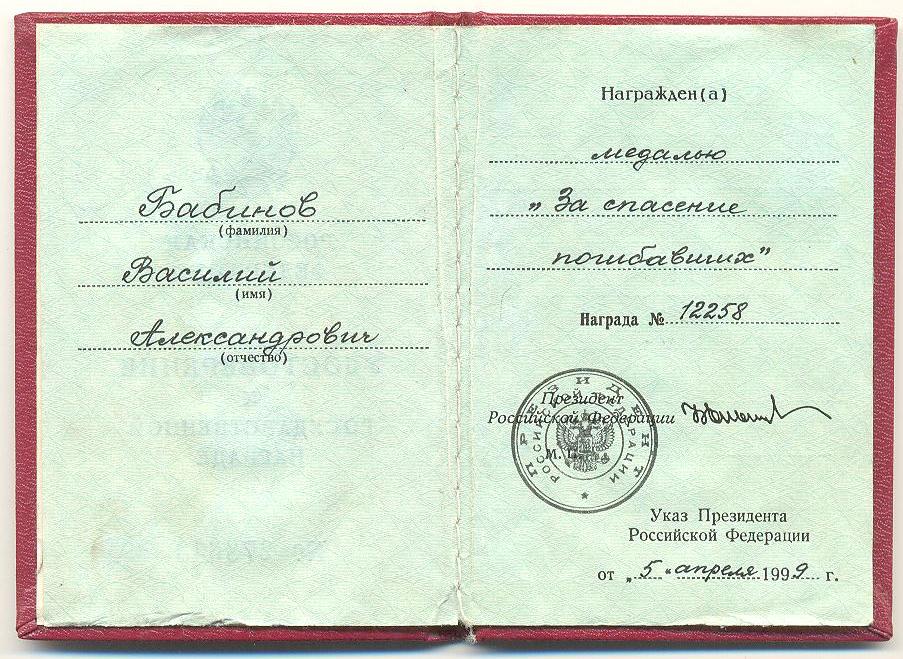 Бабинов
(фамилия)
Василий
(имя)
Александрович
(отчество)
Награжден(а)
медалью
„За спасение
погибавших"
Награда № 12258
Президент
Российской Федерации
М. П.
ПРЕЗИДЕНТ
РОССИЙСКОЙ ФЕДЕРАЦИИ
Указ Президента
Российской Федерации
от „5" апреля 1999 г.